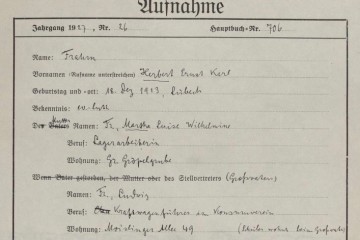 Aufnahme
Jahrgang 1927, Nr. 26 Hauptbuch-Nr. 706
Name: Frahm
Vornamen (Rufname unterstreichen) Herbert Ernst Karl
Geburtstag und -ort: 18. Dez 1913, Lübeck
Bekenntnis: ev.-luth
Des Vaters Mutter Namen: Fr., Martha Luise Wilhelmine
Beruf: Lagerarbeiterin
Wohnung: Gr. Gröpelgrube
Wenn Vater gestorben, der Mutter oder des Stellvertreters (Großvater)
Namen: Fr, Ludwig
Beruf: Kraftwagenführer im Konsumverein
Wohnung: Moislinger Allee 49 (Schüler wohnt beim Großvater)